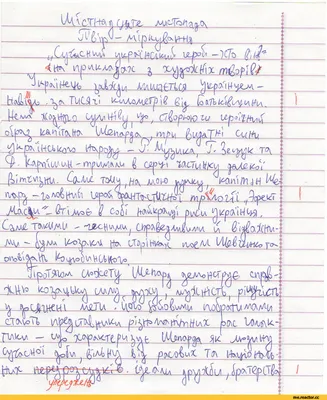 Шістнадцяте листопада
Твір - міркування
„Сучасний український герой - хто він?
(на прикладах з художніх творів)
Українець завжди лишається українцем -
навіть за тисячі кілометрів від батьківщини.
Нема жодного сумніву, що, створюючи героїчний
образ капітана Шепарда, три видатні сини
українського народу - Г. Музика, Г. Зещук та
Д. Карпишин - тримали в серці частинку далекої
Вітчизни. Саме тому, на мою думку, капітан Ше-
пард - головний герой фантастичної трилогії „Эфект
Маси" - втілює в собі найкращі риси українця.
Саме такими - чесними, справедливими й відважни-
ми - були козаки на сторінках поем Шевченка та
оповідань Коцюбинського.
Протягом сюжету Шепард демонструє спра-
вжню козацьку силу духу, мужність, рішучість
у досяганні мети. Його бойовими побратимами
стають представники різноманітних рас Галак-
тики - що характеризує Шепарда як людину
сучасної доби, вільну від расових та національ-
них передрозсудків. Ідеали дружби, братерства
упереджень
I
I
I
me.reactor.cc